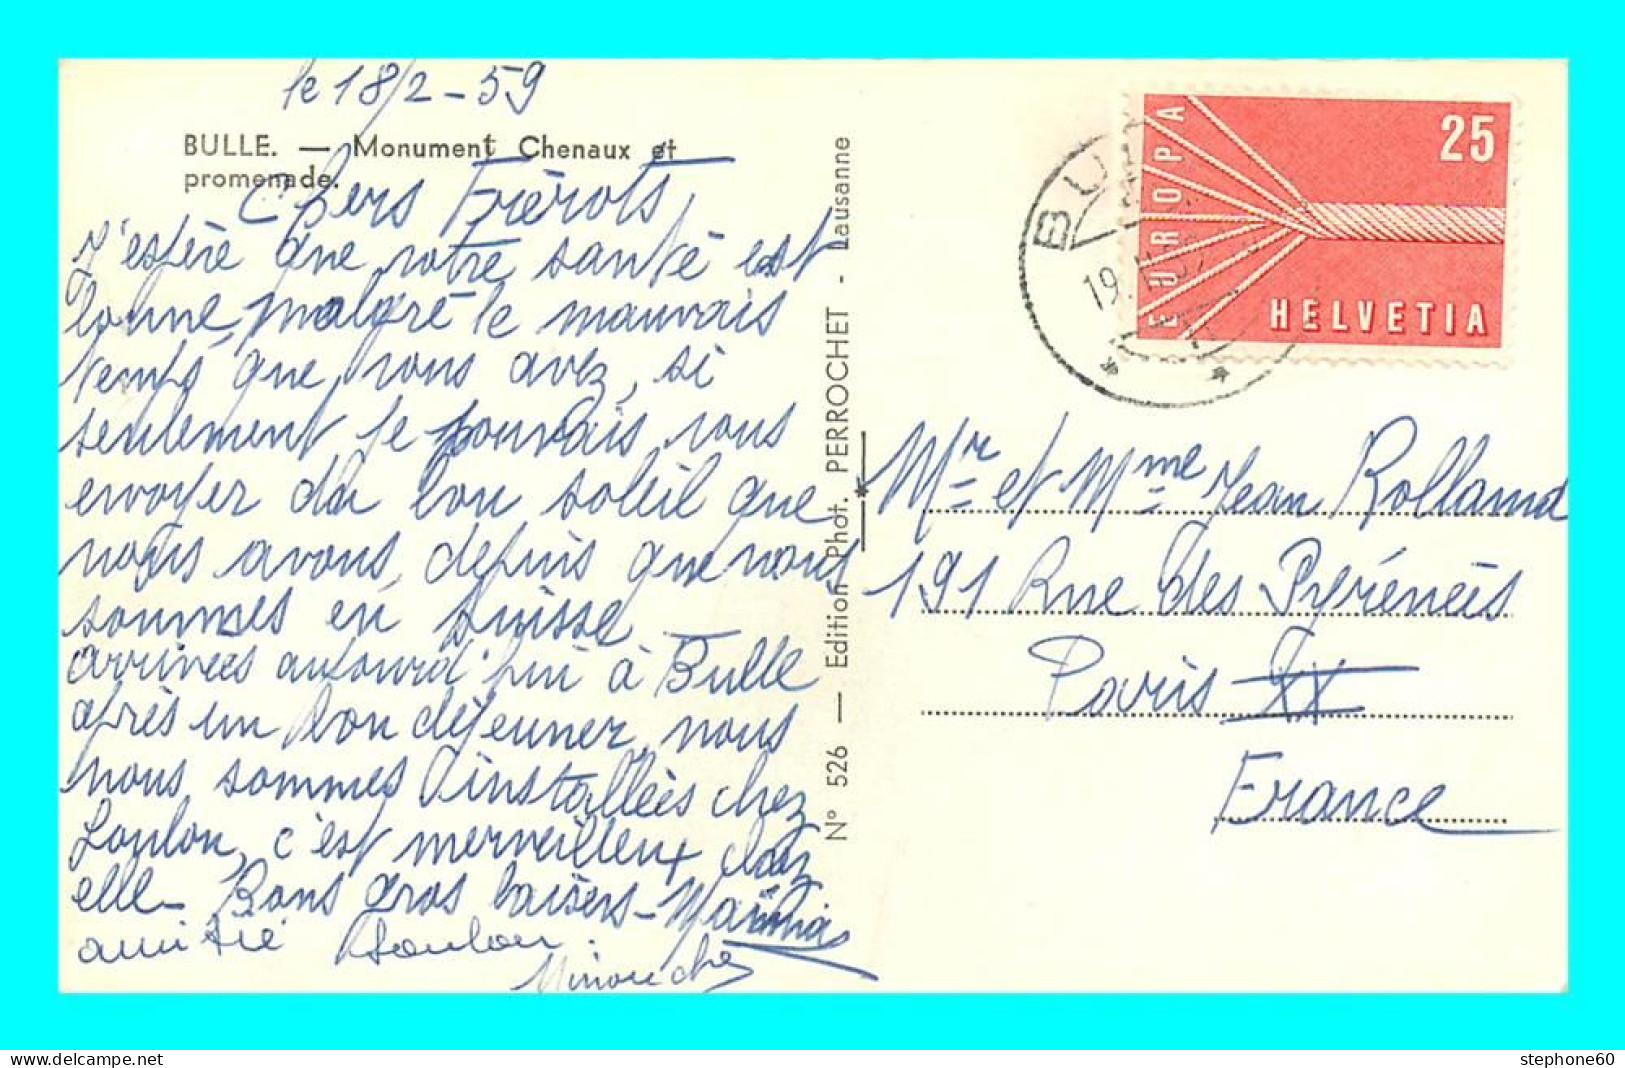 le 18/2 - 59
BULLE. — Monument Chenaux et
promenade.
Chers Frérots,
J'espère que votre santé est
bonne, malgré le mauvais
temps que vous avez, si
seulement je pouvais vous
envoyer du bon soleil que
nous avons, depuis que nous
sommes en Suisse —
arrivées aujourd'hui à Bulle
après un bon déjeuner, nous
nous sommes installées chez
Loulou, c'est merveilleux chez
elle — Bons gros baisers —
amitié Loulou.
Minouche
N° 526 — Edition Phot. PERROCHET - Lausanne
BULLE
19.
EUROPA
25
HELVETIA
Mr et Mme Jean Rolland
191 Rue des Pyrénées
Paris XX
France
delcampe.net
stephone60